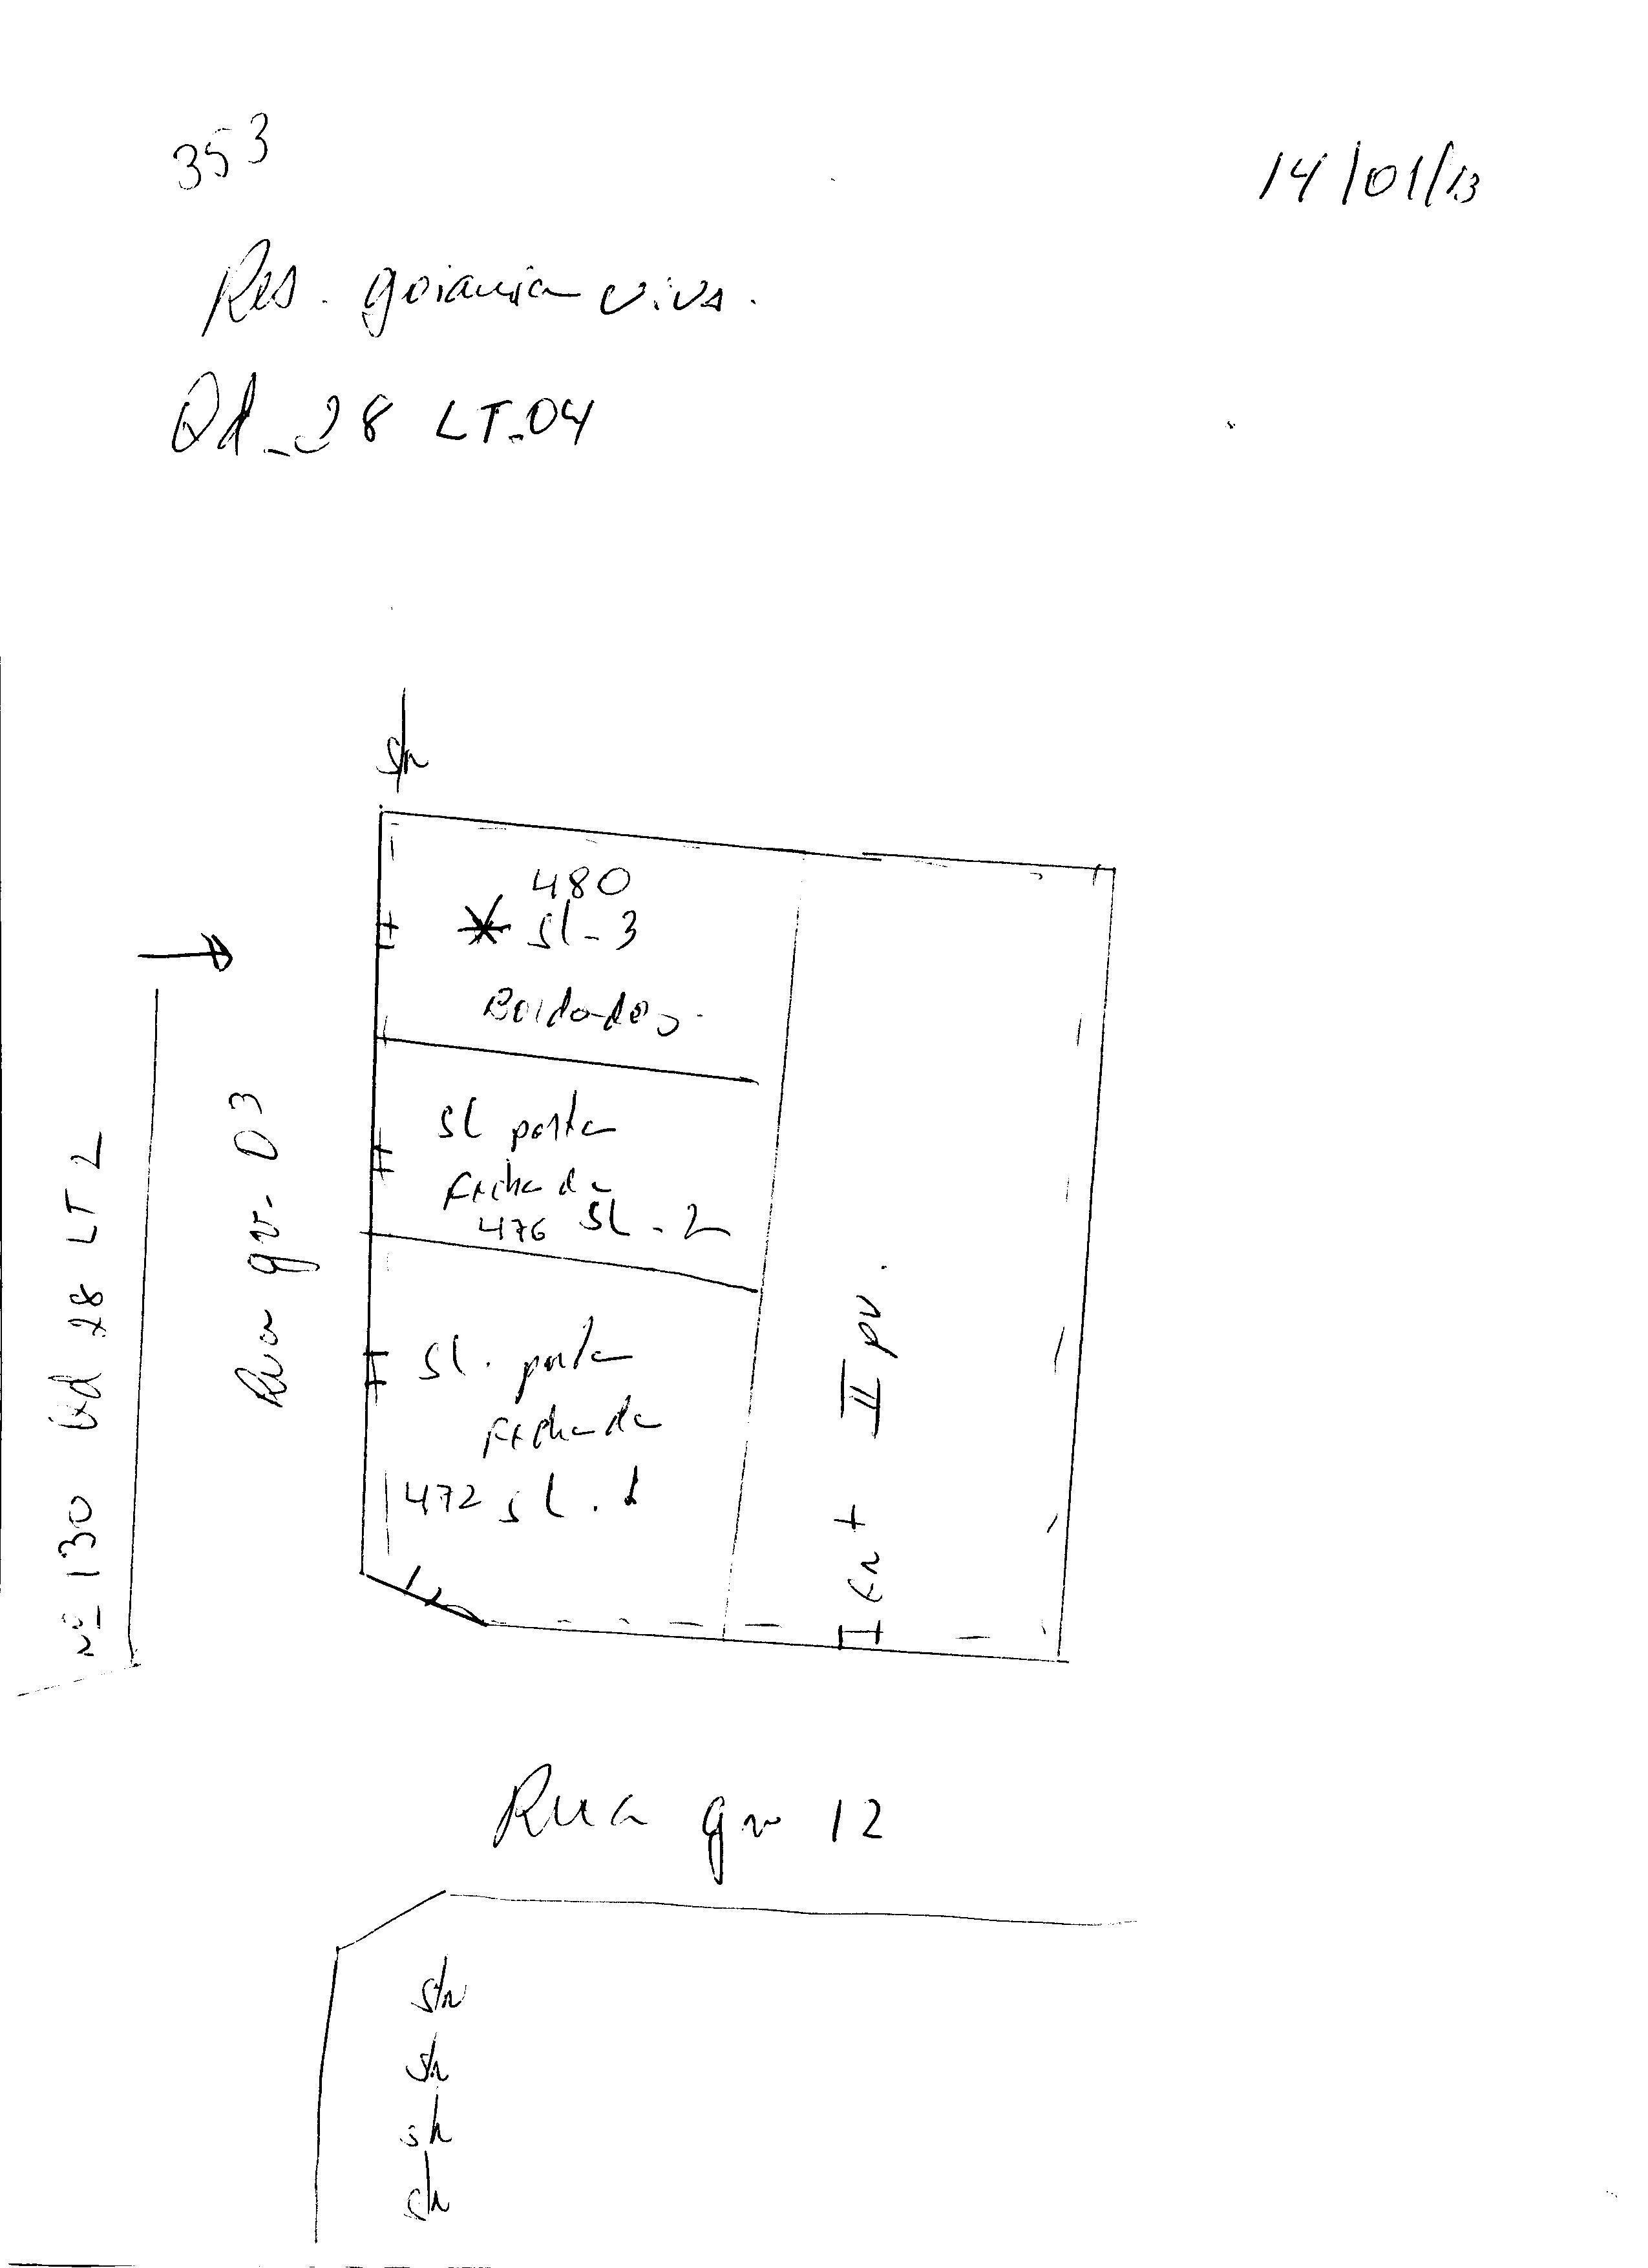 353
14/01/13
Res. goiania viva.
Qd_28 LT-04
s/n
480
* sl-3
Bordados.
sl porta
Fechada
476 sl-2
sl. porta
Fechada
472 sl. 1
Rua gv. 03
Nº 130 Qd 28 LT 2
II pv.
Rua gv 12
s/n
s/n
s/n
s/n